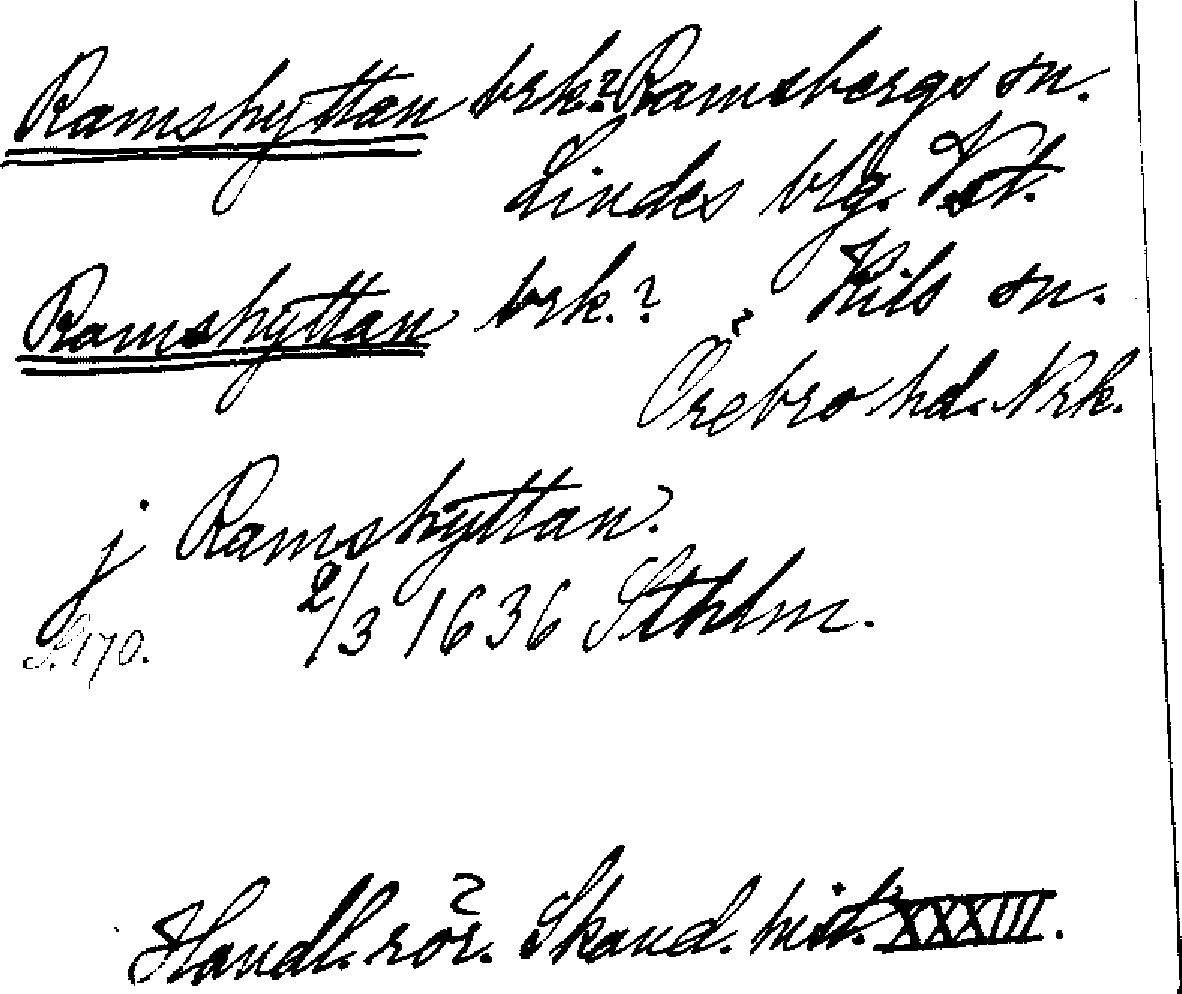 Ramshyttan brk? Ramsbergs sn.
Lindes blg. Vst.
Ramshyttan brk.? Kils sn.
Örebro hd. Nrk.
j Ramshyttan.
S. 170. 2/3 1636 Sthlm.
Handl. rör. Skand. hist. XXXIII.